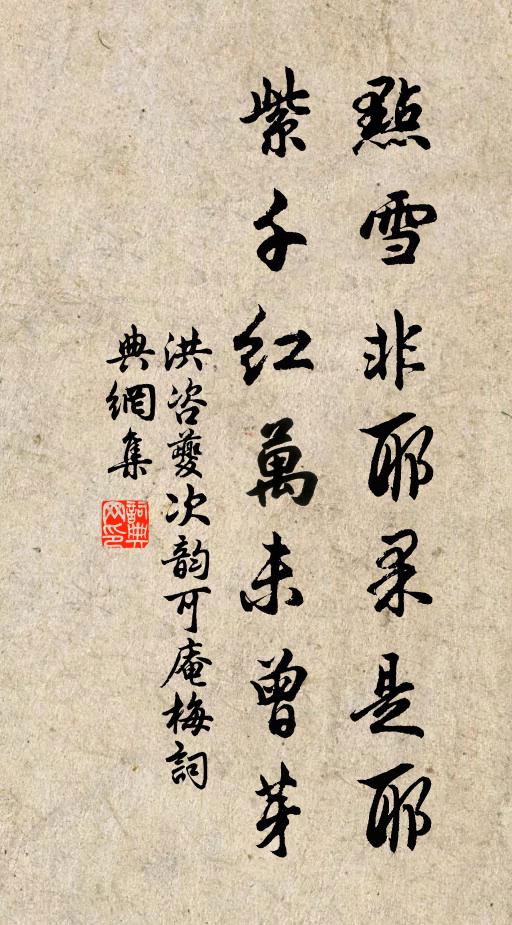 點雪非耶果是耶
紫千紅萬未曾芽
洪咨夔次韵可庵梅詞
典網集
詞典網印